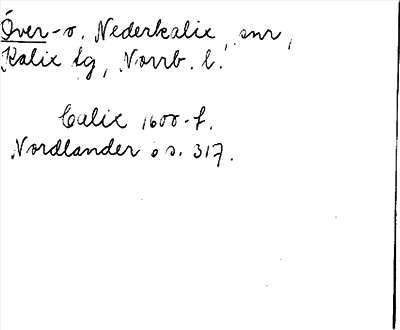 Över- o. Nederkalix, snr,
Kalix tg, Norrb. l.
Calix 1600-t.
Nordlander s. 317.